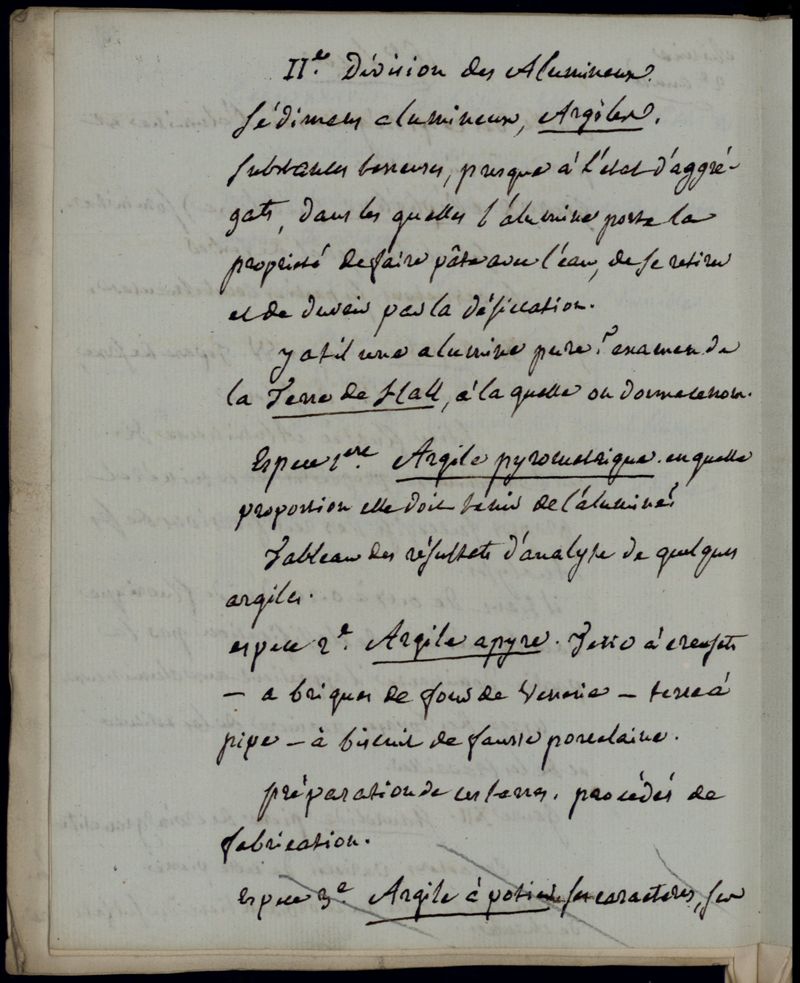 IIe. Division des Alumineux.
Sédimens alumineux, Argiles.
Substances terreuses, presque à l'état d'aggré-
gats, dans les quelles l'alumine porte la
propriété de faire pâte avec l'eau, de se retirer
et de durcir par la désiccation.
y a t il une alumine pure? examen de
la Terre de Hall, à la quelle on donne ce nom.
Espece 1ere. Argile pyrometrique. en quelle
proportion elle doit tenir de l'alumine?
Tableau des résultats d'analyse de quelques
argiles.
espece 2e. Argile apyre. Terre à creusets
— a briques de four de Verrerie — terre à
pipe — à biscuit de fausse porcelaine.
préparation de ces terres. procédés de
fabrication.
Espece 3e. Argile à potier ses caracteres, ses